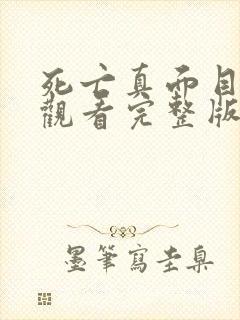 死亡真面目
觀看完整版
墨筆寫圭臬